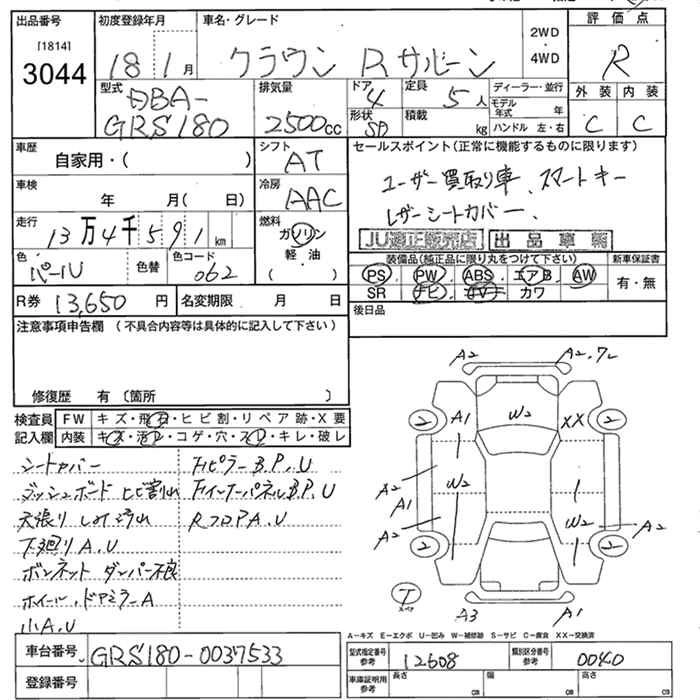 出品番号 初度登録年月 車名・グレード 2WD ・ 4WD 評価点
[1814]
3044 18 1月 クラウン Rサルーン R
型式 排気量 ドア 定員 ディーラー・並行 外装 内装
DBA- 4 5人 モデル年式 年
GRS180 2500cc 形状 SD 積載 kg ハンドル 左・右 C C
車歴 シフト セールスポイント(正常に機能するものに限ります)
自家用・( ) AT
車検 冷房 ユーザー買取り車、スマートキー
年 月( 日) AAC レザーシートカバー、
走行 燃料 JU適正販売店 出品車輌
13万4千591km ガソリン
色 色替 色コード 軽油 装備品(純正品に限り丸をつけて下さい) 新車保証書
パールU 062 ( ) PS・PW・ABS・エアB・AW 有・無
R券 13,650円 名変期限 月 日 SR ナビ・TV カワ
注意事項申告欄 (不具合内容等は具体的に記入して下さい) 後日品
修復歴 有 〔箇所 〕
検査員 FW キズ・飛石・ヒビ割・リペア跡・X要
記入欄 内装 キズ・汚レ・コゲ・穴・スレ・キレ・破レ
シートカバー FピラーB.P.U
ダッシュボード ヒビ割れ FインナーパネルB.P.U
天張り しみ汚れ RフロアA.U
下廻りA.U
ボンネット ダンパー不良
ホイール.ドアミラーA
小A.U
A2 A2.フレ
2 A1 W2 XX 2
A2 W2
A1
A2 W2 A2
2 2
T
スペア
A3 A1
A-キズ E-エクボ U-凹み W-補修跡 S-サビ C-腐食 XX-交換済
車台番号 GRS180-0037533 型式指定番号 参考 12608 類別区分番号 参考 0040
登録番号 車庫証明用 参考 長さ cm 幅 cm 高さ cm